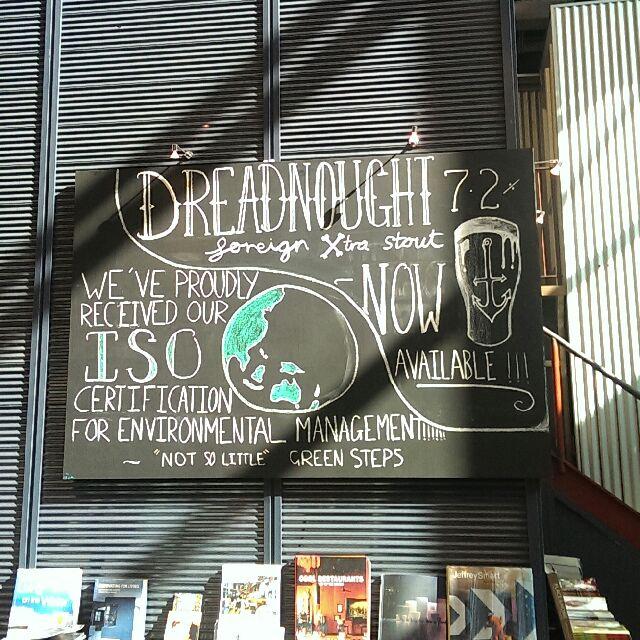 DREADNOUGHT 7.2%
foreign Xtra stout
WE'VE PROUDLY
RECEIVED OUR
ISO
CERTIFICATION
FOR ENVIRONMENTAL MANAGEMENT!!!!!!
~ "NOT SO LITTLE" GREEN STEPS
NOW
AVAILABLE!!!
COOL RESTAURANTS
Jeffrey Smart